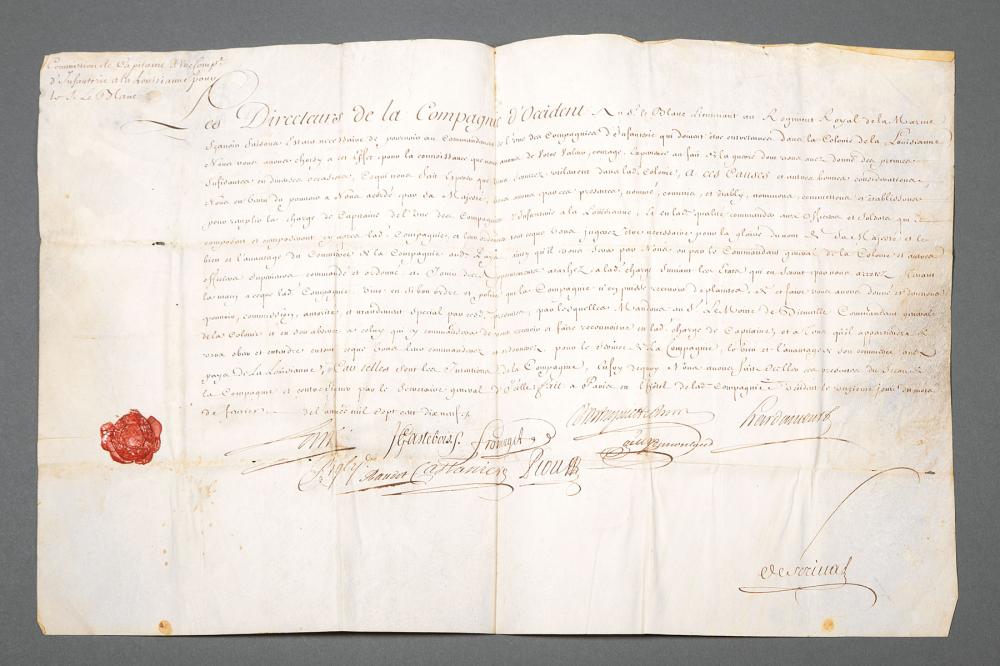 Commission de Capitaine d'une Comp.e
d'Infanterie a la Louisianne pour
le S. Le Blanc
Les Directeurs de la Compagnie d'Occident Au S.r le Blanc Lieutenant au Regiment Royal de la Marine
Estant necessaire de pourvoir au Commandement de l'une des Compagnies d'Infanterie qui doivent être entretenues dans la Colonie de la Louisianne
Nous vous avons choisy a cet effet, pour la connoissance que nous avons de votre valeur, courage, Experience au fait de la guerre dont vous avez donné des preuves
suffisantes en diverses occasions, Ce qui nous fait esperer que vous servirez utilement dans lad. Colonie, A CES CAUSES et autres bonnes considerations
Nous en vertu du pouvoir a Nous accordé par Sa Majesté, vous avons par ces presentes, nommé, commis, et étably, nommons, commettons et établissons
pour remplir la charge de Capitaine de l'une des Compagnies d'Infanterie a la Louisianne, Et en lad. qualité commander aux Officiers et Soldats qui
composent et composeront cy après lad. Compagnie, et leur ordonner tout ce que vous jugerez être necessaire pour la gloire du nom de Sa Majesté, et le
bien et l'avantage du Commerce de la Compagnie aud. Pays, ainsy qu'il vous sera par Nous ou par le Commandant general de la Colonie et autres
officiers superieurs commandé et ordonné, et Jouir des appointements attachez a lad. charge suivant les Etats qui en seront par nous arretez, tenant
la main a ce que lad. Compagnie vive en si bon ordre et police que la Compagnie n'en puisse recevoir de plaintes. De ce faire vous avons donné et donnons
pouvoir, commission, autorité, et mandement special par ces presentes, par lesquelles Mandons au S. Le Moine de Bienville Commandant general
de la Colonie et en son absence a celuy qui y commandera de vous recevoir et faire reconnoitre en lad. charge de Capitaine, et a tous qu'il appartiendra de
vous obeir et entendre en tout ce que vous leur commanderez et ordonnerez, pour le service de la Compagnie, le bien et l'avantage de son commerce aud.
pays de la Louisianne, Car telles sont les Intentions de la Compagnie, En foy de quoy Nous avons fait sceller ces presentes du Sceau de
la Compagnie et contresigner par le Secretaire general d'Icelle. Fait a Paris en l'Hôtel de lad. Compagnie le vingtieme jour du mois
de fevrier de l'année mil sept cent dix neuf
J. Gastebois
Raudot Castanier Piou
Hardancourt
Deserinat